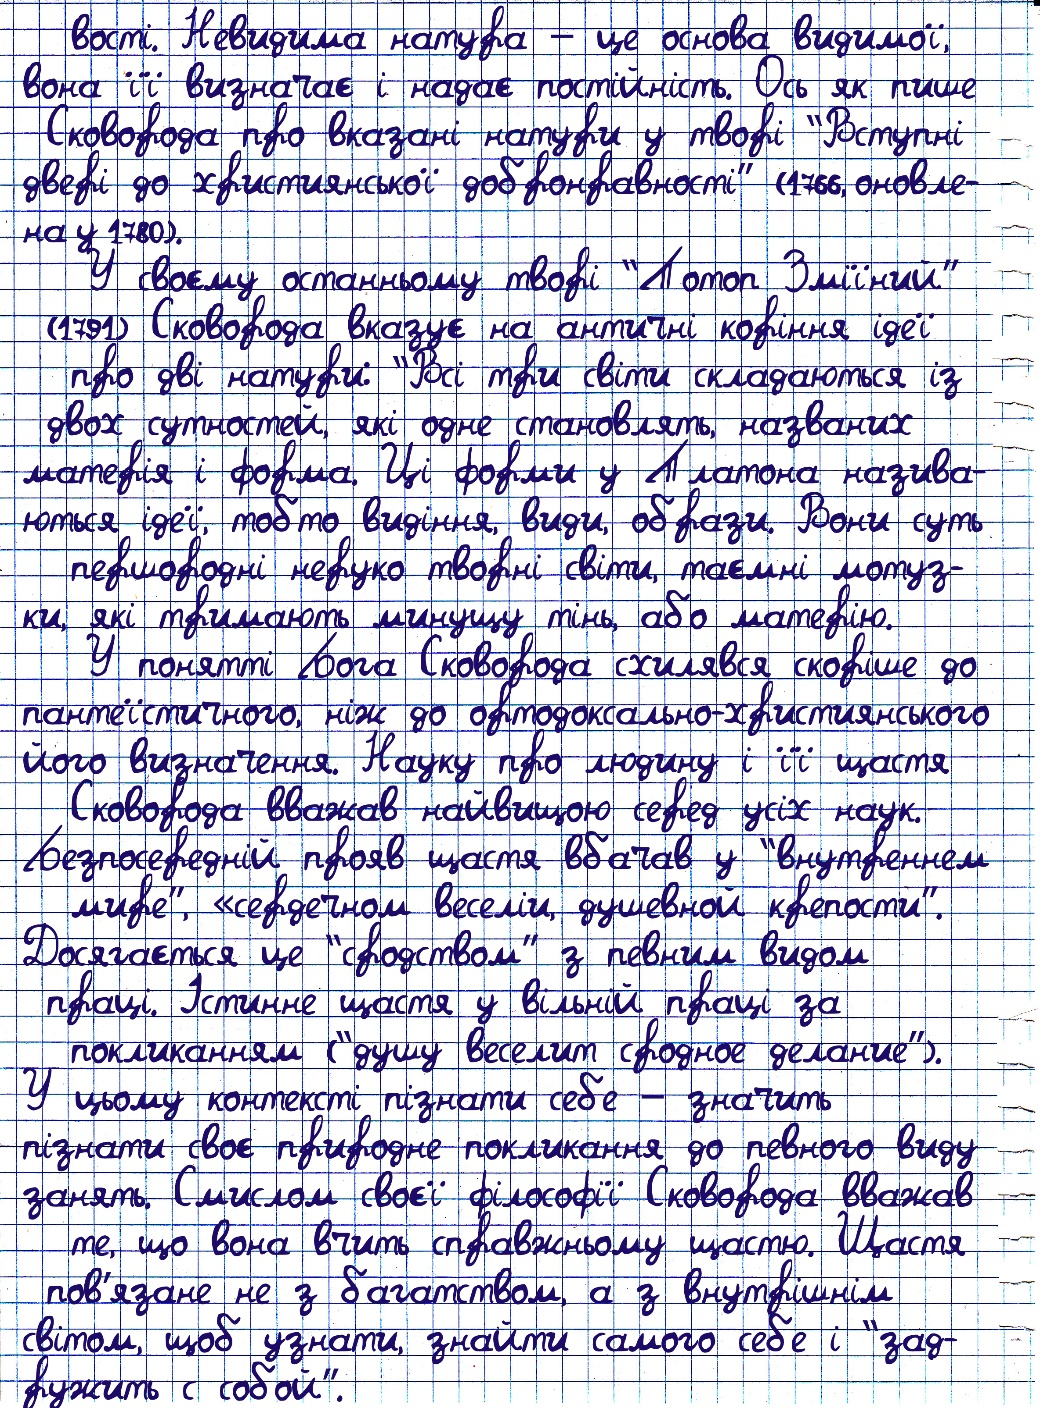 вості. Невидима натура – це основа видимої,
вона її визначає і надає постійність. Ось як пише
Сковорода про вказані натури у творі "Вступні
двері до християнської добронравності" (1766, оновле-
на у 1780).
У своєму останньому творі "Потоп Зміїний"
(1791) Сковорода вказує на античні коріння ідеї
про дві натури: "Всі три світи складаються із
двох сутностей, які одне становлять, названих
матерія і форма. Ці форми у Платона назива-
ються ідеї, тобто видіння, види, образи. Вони суть
першородні неруко творні світи, таємні мотуз-
ки, які тримають минущу тінь, або матерію.
У понятті Бога Сковорода схилявся скоріше до
пантеїстичного, ніж до ортодоксально-християнського
його визначення. Науку про людину і її щастя
Сковорода вважав найвищою серед усіх наук.
Безпосередній прояв щастя вбачав у "внутреннем
мире", «сердечном веселіи, душевной крепости".
Досягається це "сродством" з певним видом
праці. Істинне щастя у вільній праці за
покликанням ("душу веселит сродное делание").
У цьому контексті пізнати себе – значить
пізнати своє природне покликання до певного виду
занять. Смислом своєї філософії Сковорода вважав
те, що вона вчить справжньому щастю. Щастя
пов'язане не з багатством, а з внутрішнім
світом, щоб узнати, знайти самого себе і "зад-
ружить с собой".